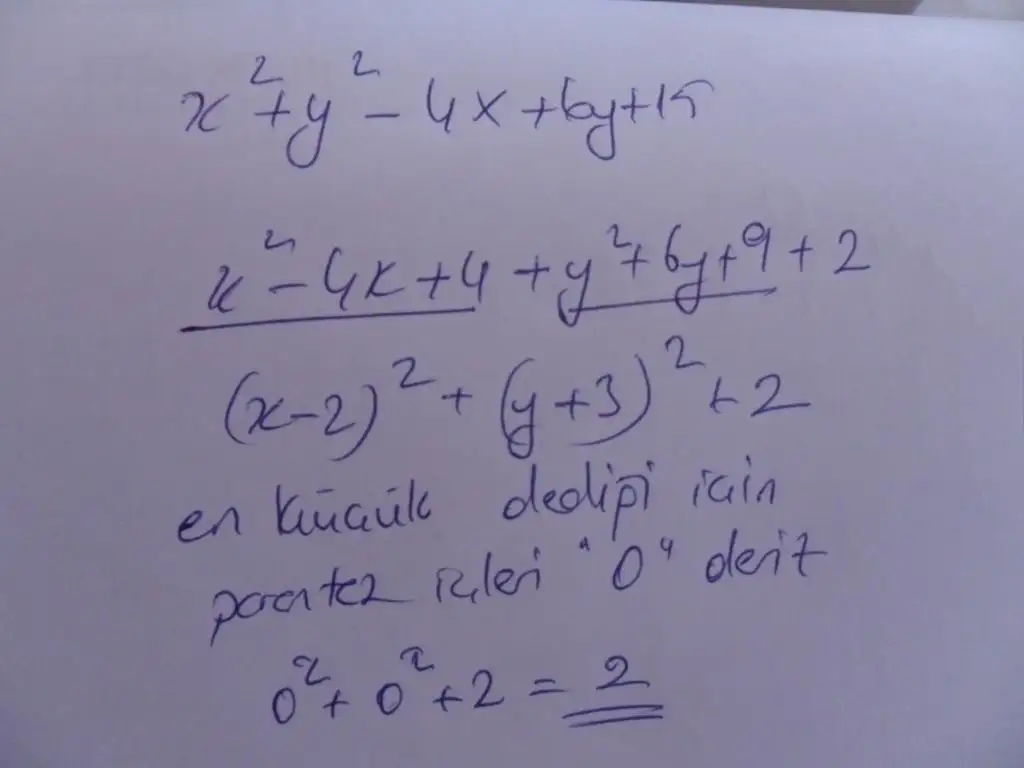 x² + y² - 4x + 6y + 15
x² - 4x + 4 + y² + 6y + 9 + 2
(x-2)² + (y+3)² + 2
en küçük dediği için
parantez içleri "0" deriz
0² + 0² + 2 = 2